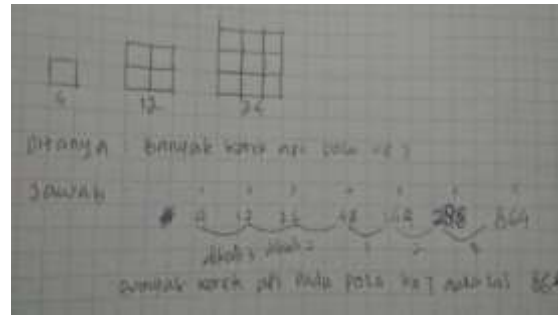 4 12 24
Ditanya : Banyak korek api pola ke 7
Jawab
4 12 24 48 144 288 864
dikali 3 dikali 2 3 2 3
Banyak korek api pada pola ke 7 adalah 864